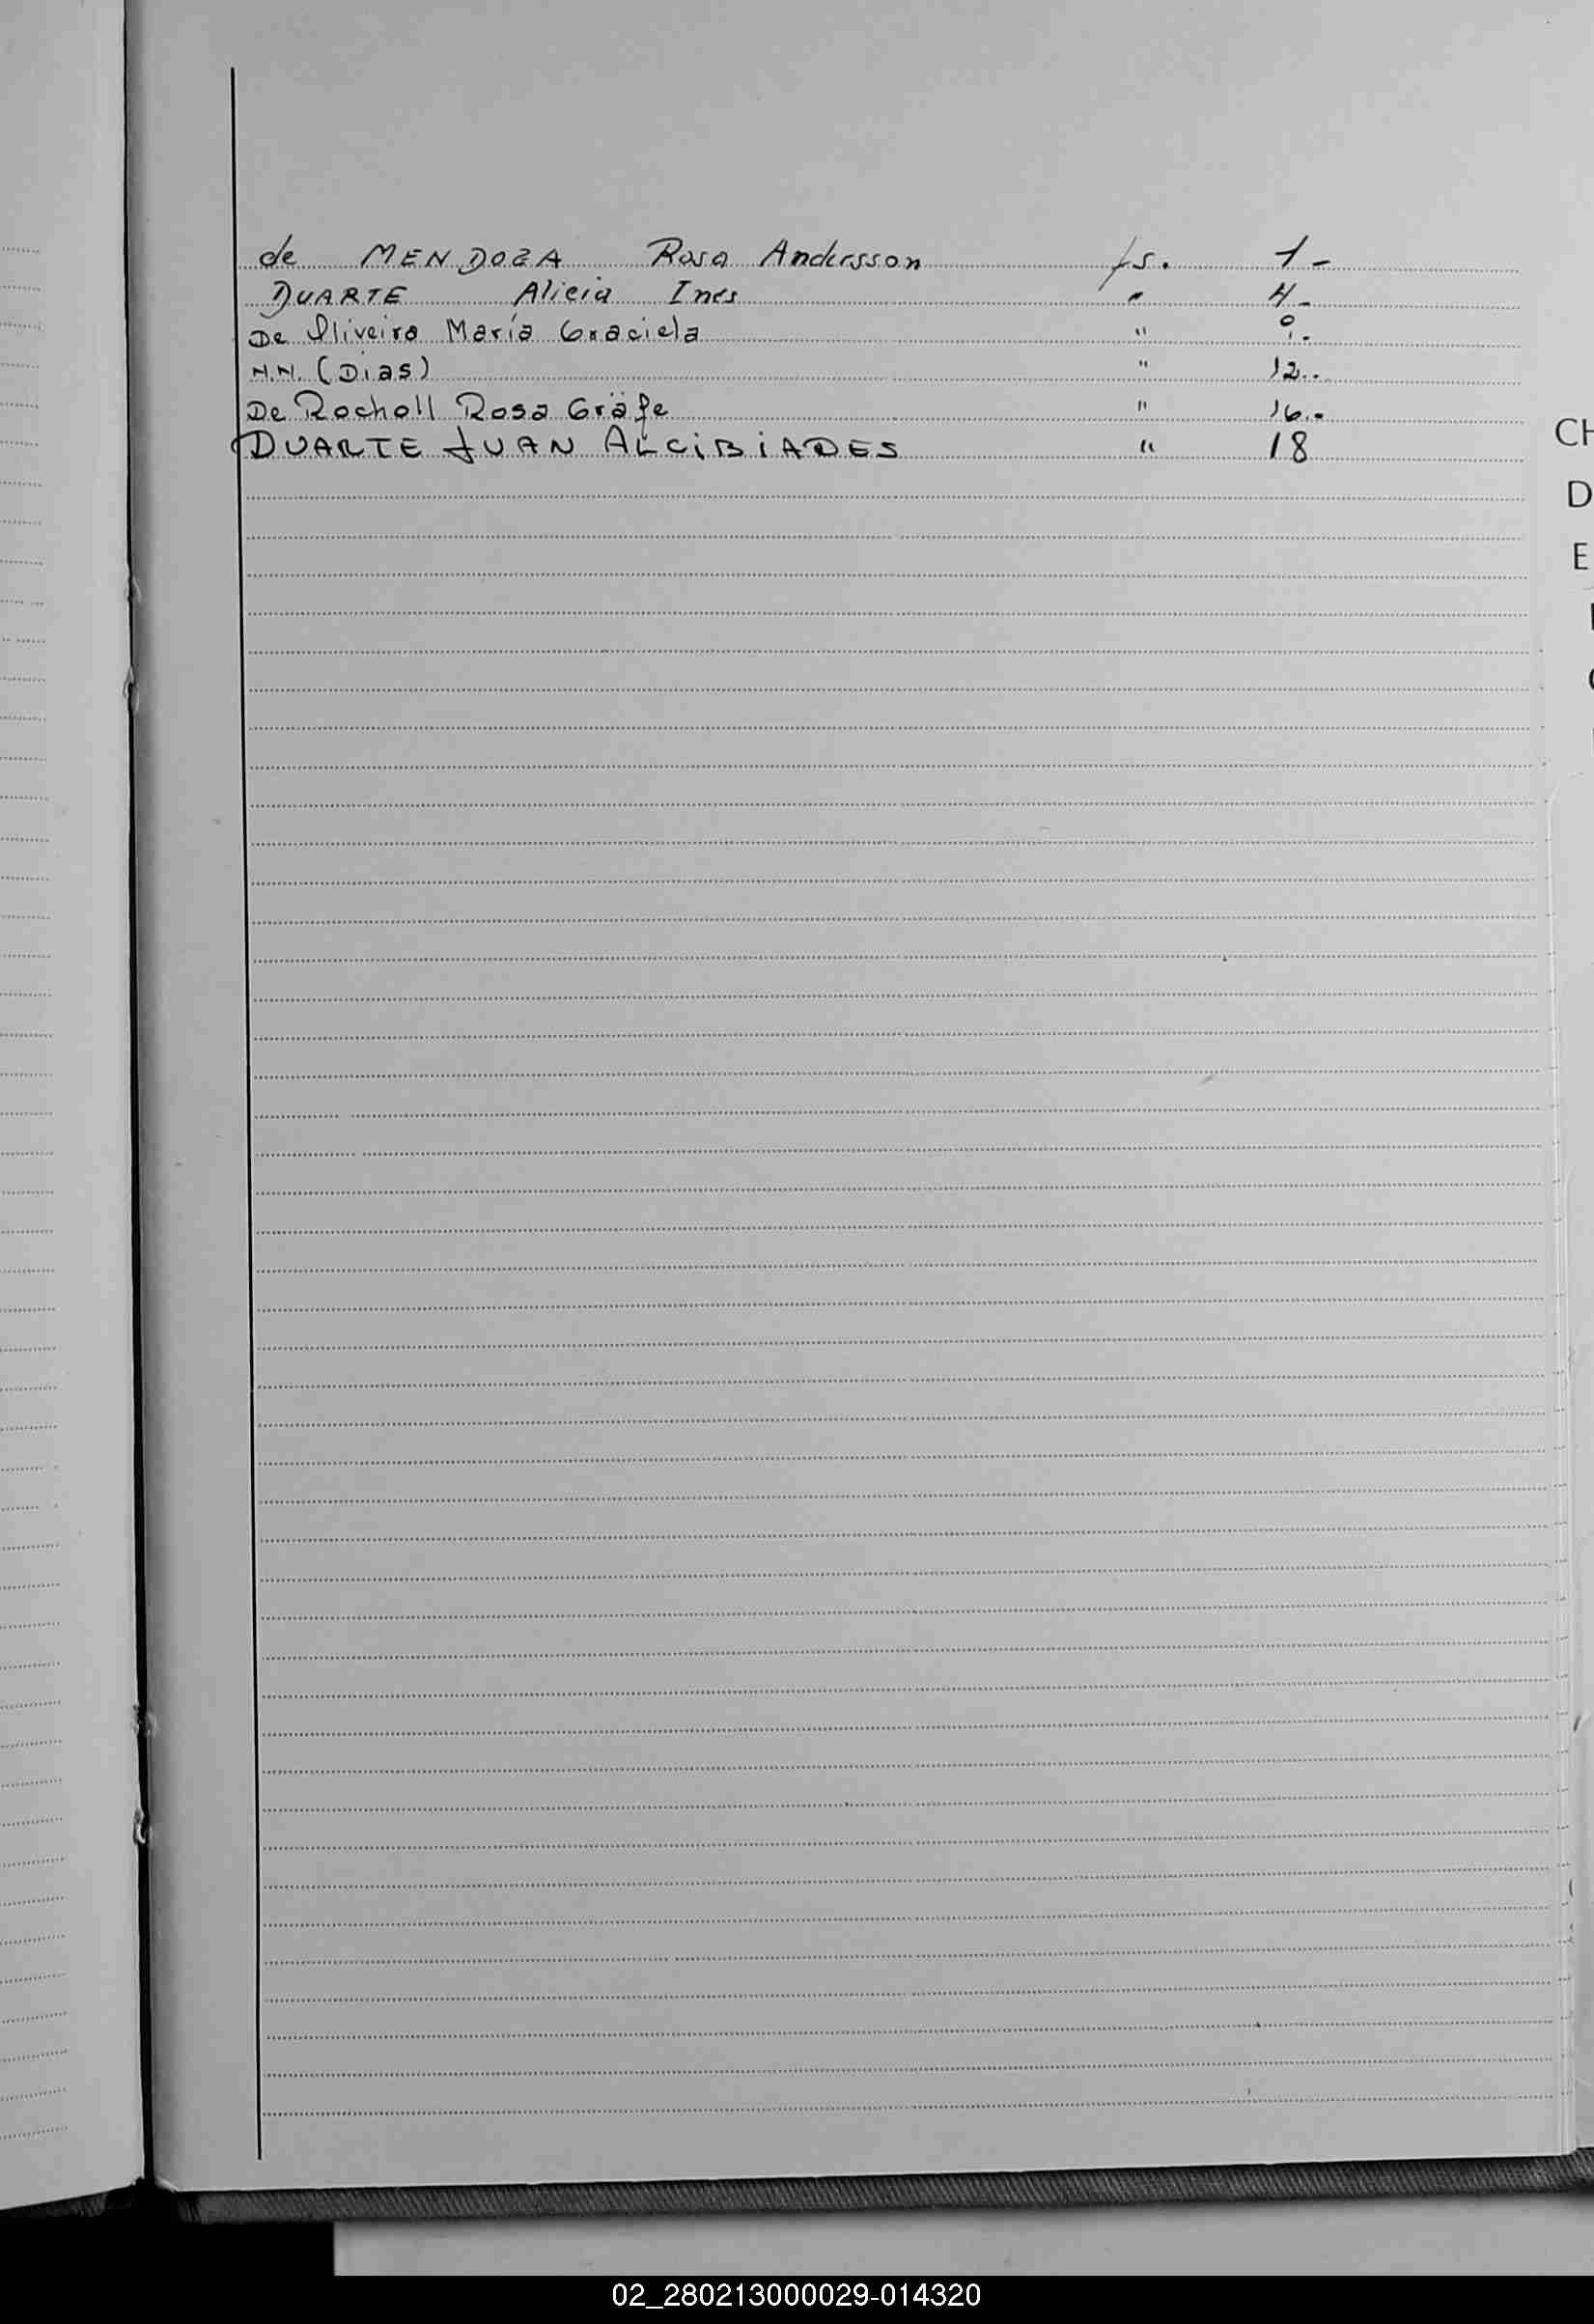 de MENDOZA Rosa Andersson fs. 1 -
DUARTE Alicia Ines " 4 -
De Oliveira María Graciela " 9.-
N.N. (Dias) " 12.-
De Rocholl Rosa Gräfe " 16.-
DUARTE JUAN ALCIBIADES " 18
CH
D
E
02_280213000029-014320